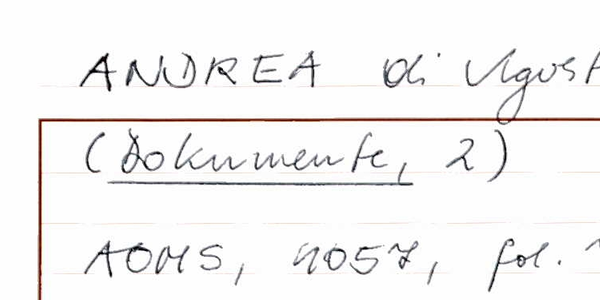 ANDREA di Agost
(Dokumente, 2)
AOMS, 4057, fol.